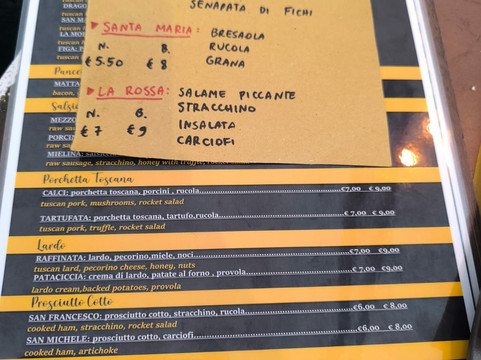 SENAPATA DI FICHI
▶ SANTA MARIA: BRESAOLA
N. B. RUCOLA
€5.50 €8 GRANA
▶ LA ROSSA: SALAME PICCANTE
N. G. STRACCHINO
€7 €9 INSALATA
CARCIOFI
DRAGO
tuscan
SAN M
tuscan
LA MO
tuscan
FIGA: P
tuscan
Pance
MATTA
bacon,
Salsic
MEZZO
raw sau
PORCIN
raw sau
MIELINA: salsicc
raw sausage, stracchino, honey with truffle
Porchetta Toscana
CALCI: porchetta toscana, porcini , rucola €7,00 € 9,00
tuscan pork, mushrooms, rocket salad
TARTUFATA: porchetta toscana, tartufo,rucola € 7,00 € 9,00
tuscan pork, truffle, rocket salad
Lardo
RAFFINATA: lardo, pecorino,miele, noci €7,00 €9,00
tuscan lard, pecorino cheese, honey, nuts
PATACICCIA: crema di lardo, patate al forno , provola € 7,00 €9,00
lardo cream,backed potatoes, provola
Prosciutto Cotto
SAN FRANCESCO: prosciutto cotto, stracchino, rucola €6,00 € 8,00
cooked ham, stracchino, rocket salad
SAN MICHELE: prosciutto cotto, carciofi €6,00 € 8,00
cooked ham, artichoke